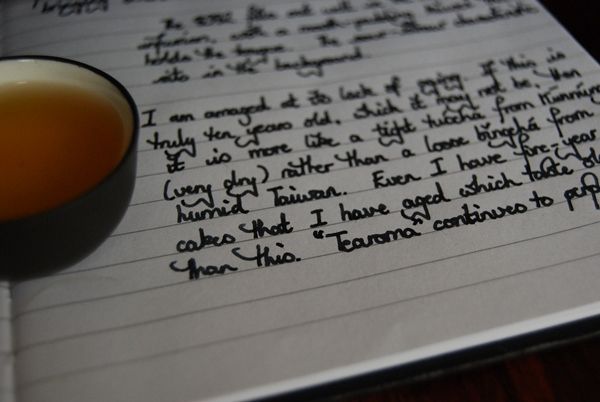 infusion, with a mouth-
holds the tongue. The sour
sits in the background
I am amazed at its lack of aging. If this is
truly ten years old, which it may not be, then
it is more like a tight tuocha from Kunming
(very dry) rather than a loose bingcha from
humid Taiwan. Even I have five-year
cakes that I have aged which taste old
than this. "Tearoma" continues to perp